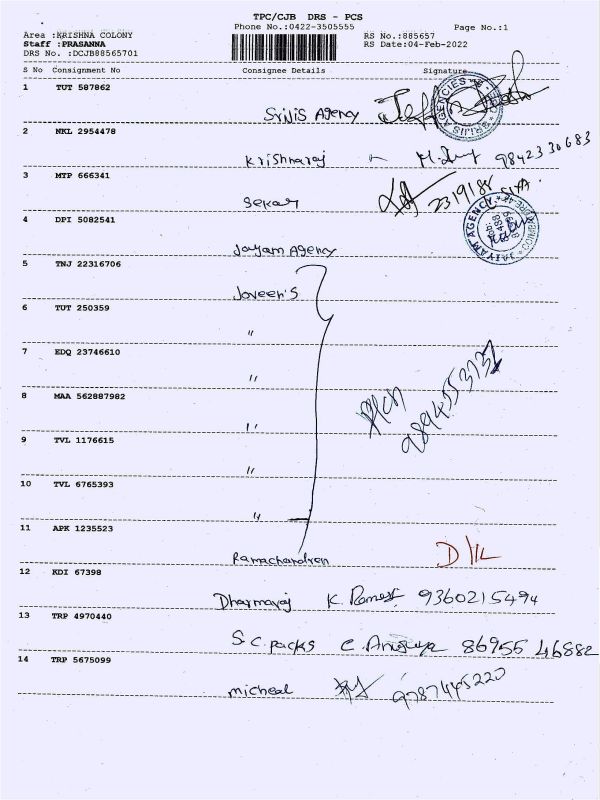 TPC/CJB DRS - PCS
Phone No.:0422-3505555
Page No.:1
Area :KRISHNA COLONY
RS No.:885657
Staff :PRASANNA
RS Date:04-Feb-2022
DRS No. :DCJB88565701
S No Consignment No Consignee Details Signature
1 TUT 587862
Srijis Agency
2 NKL 2954478
Krishnaraj 98423 30683
3 MTP 666341
Sekar 2319188
4 DPI 5082541
JAIYAM AGENCY
Jayam Agency
5 TNJ 22316706
Joveen's
6 TUT 250359
"
7 EDQ 23746610
"
8 MAA 562887982
"
9 TVL 1176615
"
10 TVL 6765393
"
11 APK 1235523
Ramachandren
12 KDI 67398
Dharmaraj K. Ramesh 9360215494
13 TRP 4970440
S.C. packs 86955 46882
14 TRP 5675099
micheal 9787445220